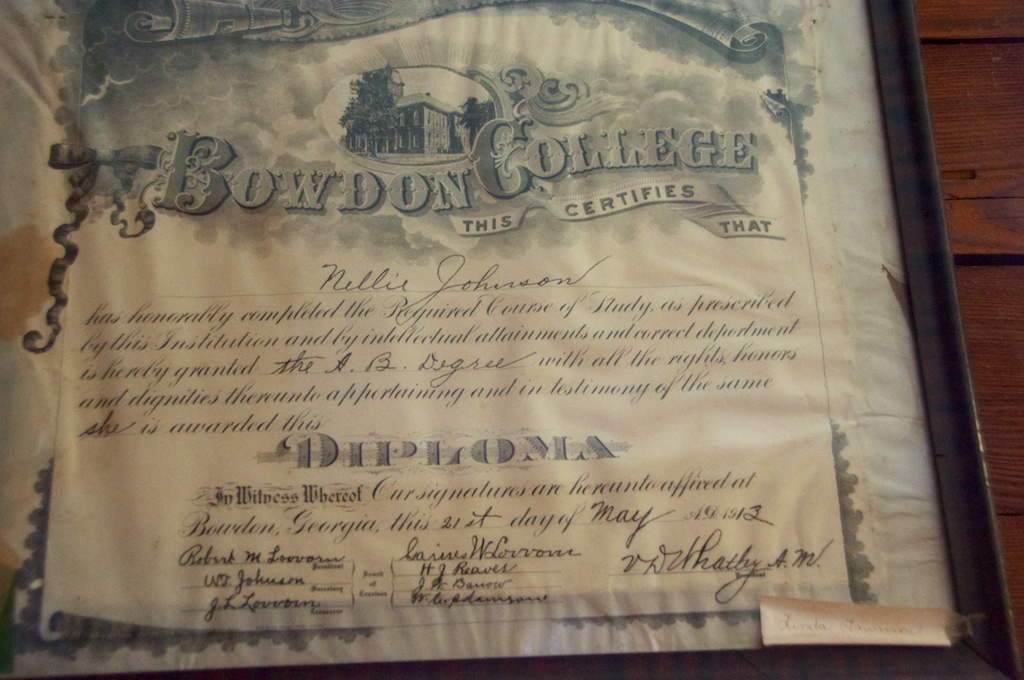 BOWDON COLLEGE
THIS CERTIFIES THAT
Nellie Johnson
has honorably completed the Required Course of Study, as prescribed
by this Institution and by intellectual attainments and correct deportment
is hereby granted the A. B. Degree with all the rights, honors
and dignities thereunto appertaining and in testimony of the same
she is awarded this
DIPLOMA
In Witness Whereof Our signatures are hereunto affixed at
Bowdon, Georgia, this 21st day of May A.D. 1913
Robert M Lovvorn
President
W.T. Johnson
Secretary
J. L. Lovvorn
Treasurer
Board of Trustees
W Lovvorn
H J Reaver
J. W. Barrow
W. C. Adamson
V D Whatley A. M.
President